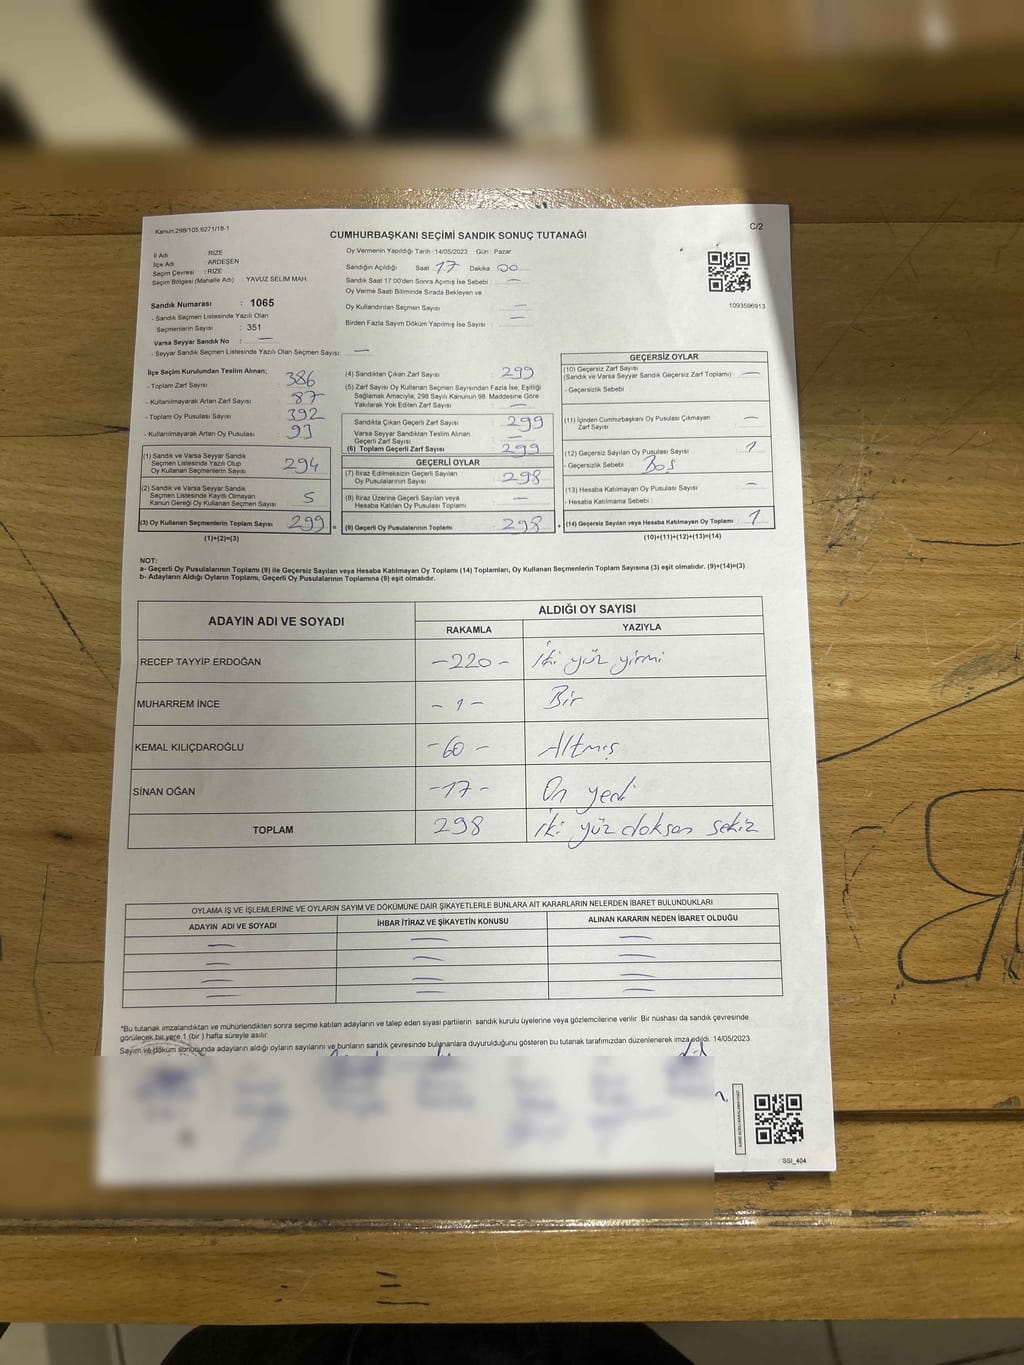 Kanun:298/105,6271/18-1
C/2
CUMHURBAŞKANI SEÇİMİ SANDIK SONUÇ TUTANAĞI
İl Adı : RİZE
İlçe Adı : ARDEŞEN
Seçim Çevresi : RİZE
Seçim Bölgesi (Mahalle Adı) YAVUZ SELİM MAH.
Sandık Numarası : 1065
- Sandık Seçmen Listesinde Yazılı Olan
Seçmenlerin Sayısı : 351
Varsa Seyyar Sandık No : —
- Seyyar Sandık Seçmen Listesinde Yazılı Olan Seçmen Sayısı: —
Oy Vermenin Yapıldığı Tarih : 14/05/2023 Gün : Pazar
Sandığın Açıldığı Saat 17 Dakika 00
Sandık Saat 17:00'den Sonra Açımış İse Sebebi : —
Oy Verme Saati Bitiminde Sırada Bekleyen ve
Oy Kullandırılan Seçmen Sayısı : —
Birden Fazla Sayım Döküm Yapılmış İse Sayısı : —
1093596913
İlçe Seçim Kurulundan Teslim Alınan;
- Toplam Zarf Sayısı : 386
- Kullanılmayarak Artan Zarf Sayısı : 87
- Toplam Oy Pusulası Sayısı : 392
- Kullanılmayarak Artan Oy Pusulası : 93
(1) Sandık ve Varsa Seyyar Sandık
Seçmen Listesinde Yazılı Olup
Oy Kullanan Seçmenlerin Sayısı 294
(2) Sandık ve Varsa Seyyar Sandık
Seçmen Listesinde Kayıtlı Olmayan
Kanun Gereği Oy Kullanan Seçmen Sayısı 5
(3) Oy Kullanan Seçmenlerin Toplam Sayısı 299
(1)+(2)=(3)
=
(4) Sandıktan Çıkan Zarf Sayısı : 299
(5) Zarf Sayısı Oy Kullanan Seçmen Sayısından Fazla İse, Eşitliği
Sağlamak Amacıyla, 298 Sayılı Kanunun 98. Maddesine Göre
Yakılarak Yok Edilen Zarf Sayısı : —
Sandıkta Çıkan Geçerli Zarf Sayısı : 299
Varsa Seyyar Sandıktan Teslim Alınan
Geçerli Zarf Sayısı : —
(6) Toplam Geçerli Zarf Sayısı : 299
GEÇERLİ OYLAR
(7) İtiraz Edilmeksizin Geçerli Sayılan
Oy Pusulalarının Sayısı : 298
(8) İtiraz Üzerine Geçerli Sayılan veya
Hesaba Katılan Oy Pusulası Toplamı : —
(9) Geçerli Oy Pusulalarının Toplamı : 298
+
GEÇERSİZ OYLAR
(10) Geçersiz Zarf Sayısı
(Sandık ve Varsa Seyyar Sandık Geçersiz Zarf Toplamı) : —
- Geçersizlik Sebebi :
(11) İçinden Cumhurbaşkanı Oy Pusulası Çıkmayan
Zarf Sayısı : —
(12) Geçersiz Sayılan Oy Pusulası Sayısı : 1
- Geçersizlik Sebebi : BOŞ
(13) Hesaba Katılmayan Oy Pusulası Sayısı : —
- Hesaba Katılmama Sebebi :
(14) Geçersiz Sayılan veya Hesaba Katılmayan Oy Toplamı : 1
(10)+(11)+(12)+(13)=(14)
NOT:
a- Geçerli Oy Pusulalarının Toplamı (9) ile Geçersiz Sayılan veya Hesaba Katılmayan Oy Toplamı (14) Toplamları, Oy Kullanan Seçmenlerin Toplam Sayısına (3) eşit olmalıdır. (9)+(14)=(3)
b- Adayların Aldığı Oyların Toplamı, Geçerli Oy Pusulalarının Toplamına (9) eşit olmalıdır.
ADAYIN ADI VE SOYADI
ALDIĞI OY SAYISI
RAKAMLA YAZIYLA
RECEP TAYYİP ERDOĞAN -220- İki yüz yirmi
MUHARREM İNCE -1- Bir
KEMAL KILIÇDAROĞLU -60- Altmış
SİNAN OĞAN -17- On yedi
TOPLAM 298 iki yüz doksan sekiz
OYLAMA İŞ VE İŞLEMLERİNE VE OYLARIN SAYIM VE DÖKÜMÜNE DAİR ŞİKAYETLERLE BUNLARA AİT KARARLARIN NELERDEN İBARET BULUNDUKLARI
ADAYIN ADI VE SOYADI İHBAR İTİRAZ VE ŞİKAYETİN KONUSU ALINAN KARARIN NEDEN İBARET OLDUĞU
— — —
— — —
— — —
— — —
*Bu tutanak imzalandıktan ve mühürlendikten sonra seçime katılan adayların ve talep eden siyasi partilerin sandık kurulu üyelerine veya gözlemcilerine verilir. Bir nüshası da sandık çevresinde
görülecek bir yere 1 (bir) hafta süreyle asılır.
Sayım ve döküm sonucunda adayların aldığı oyların sayılarını ve bunların sandık çevresinde bulunanlara duyurulduğunu gösteren bu tutanak tarafımızdan düzenlenerek imza edildi. 14/05/2023
SSI_404